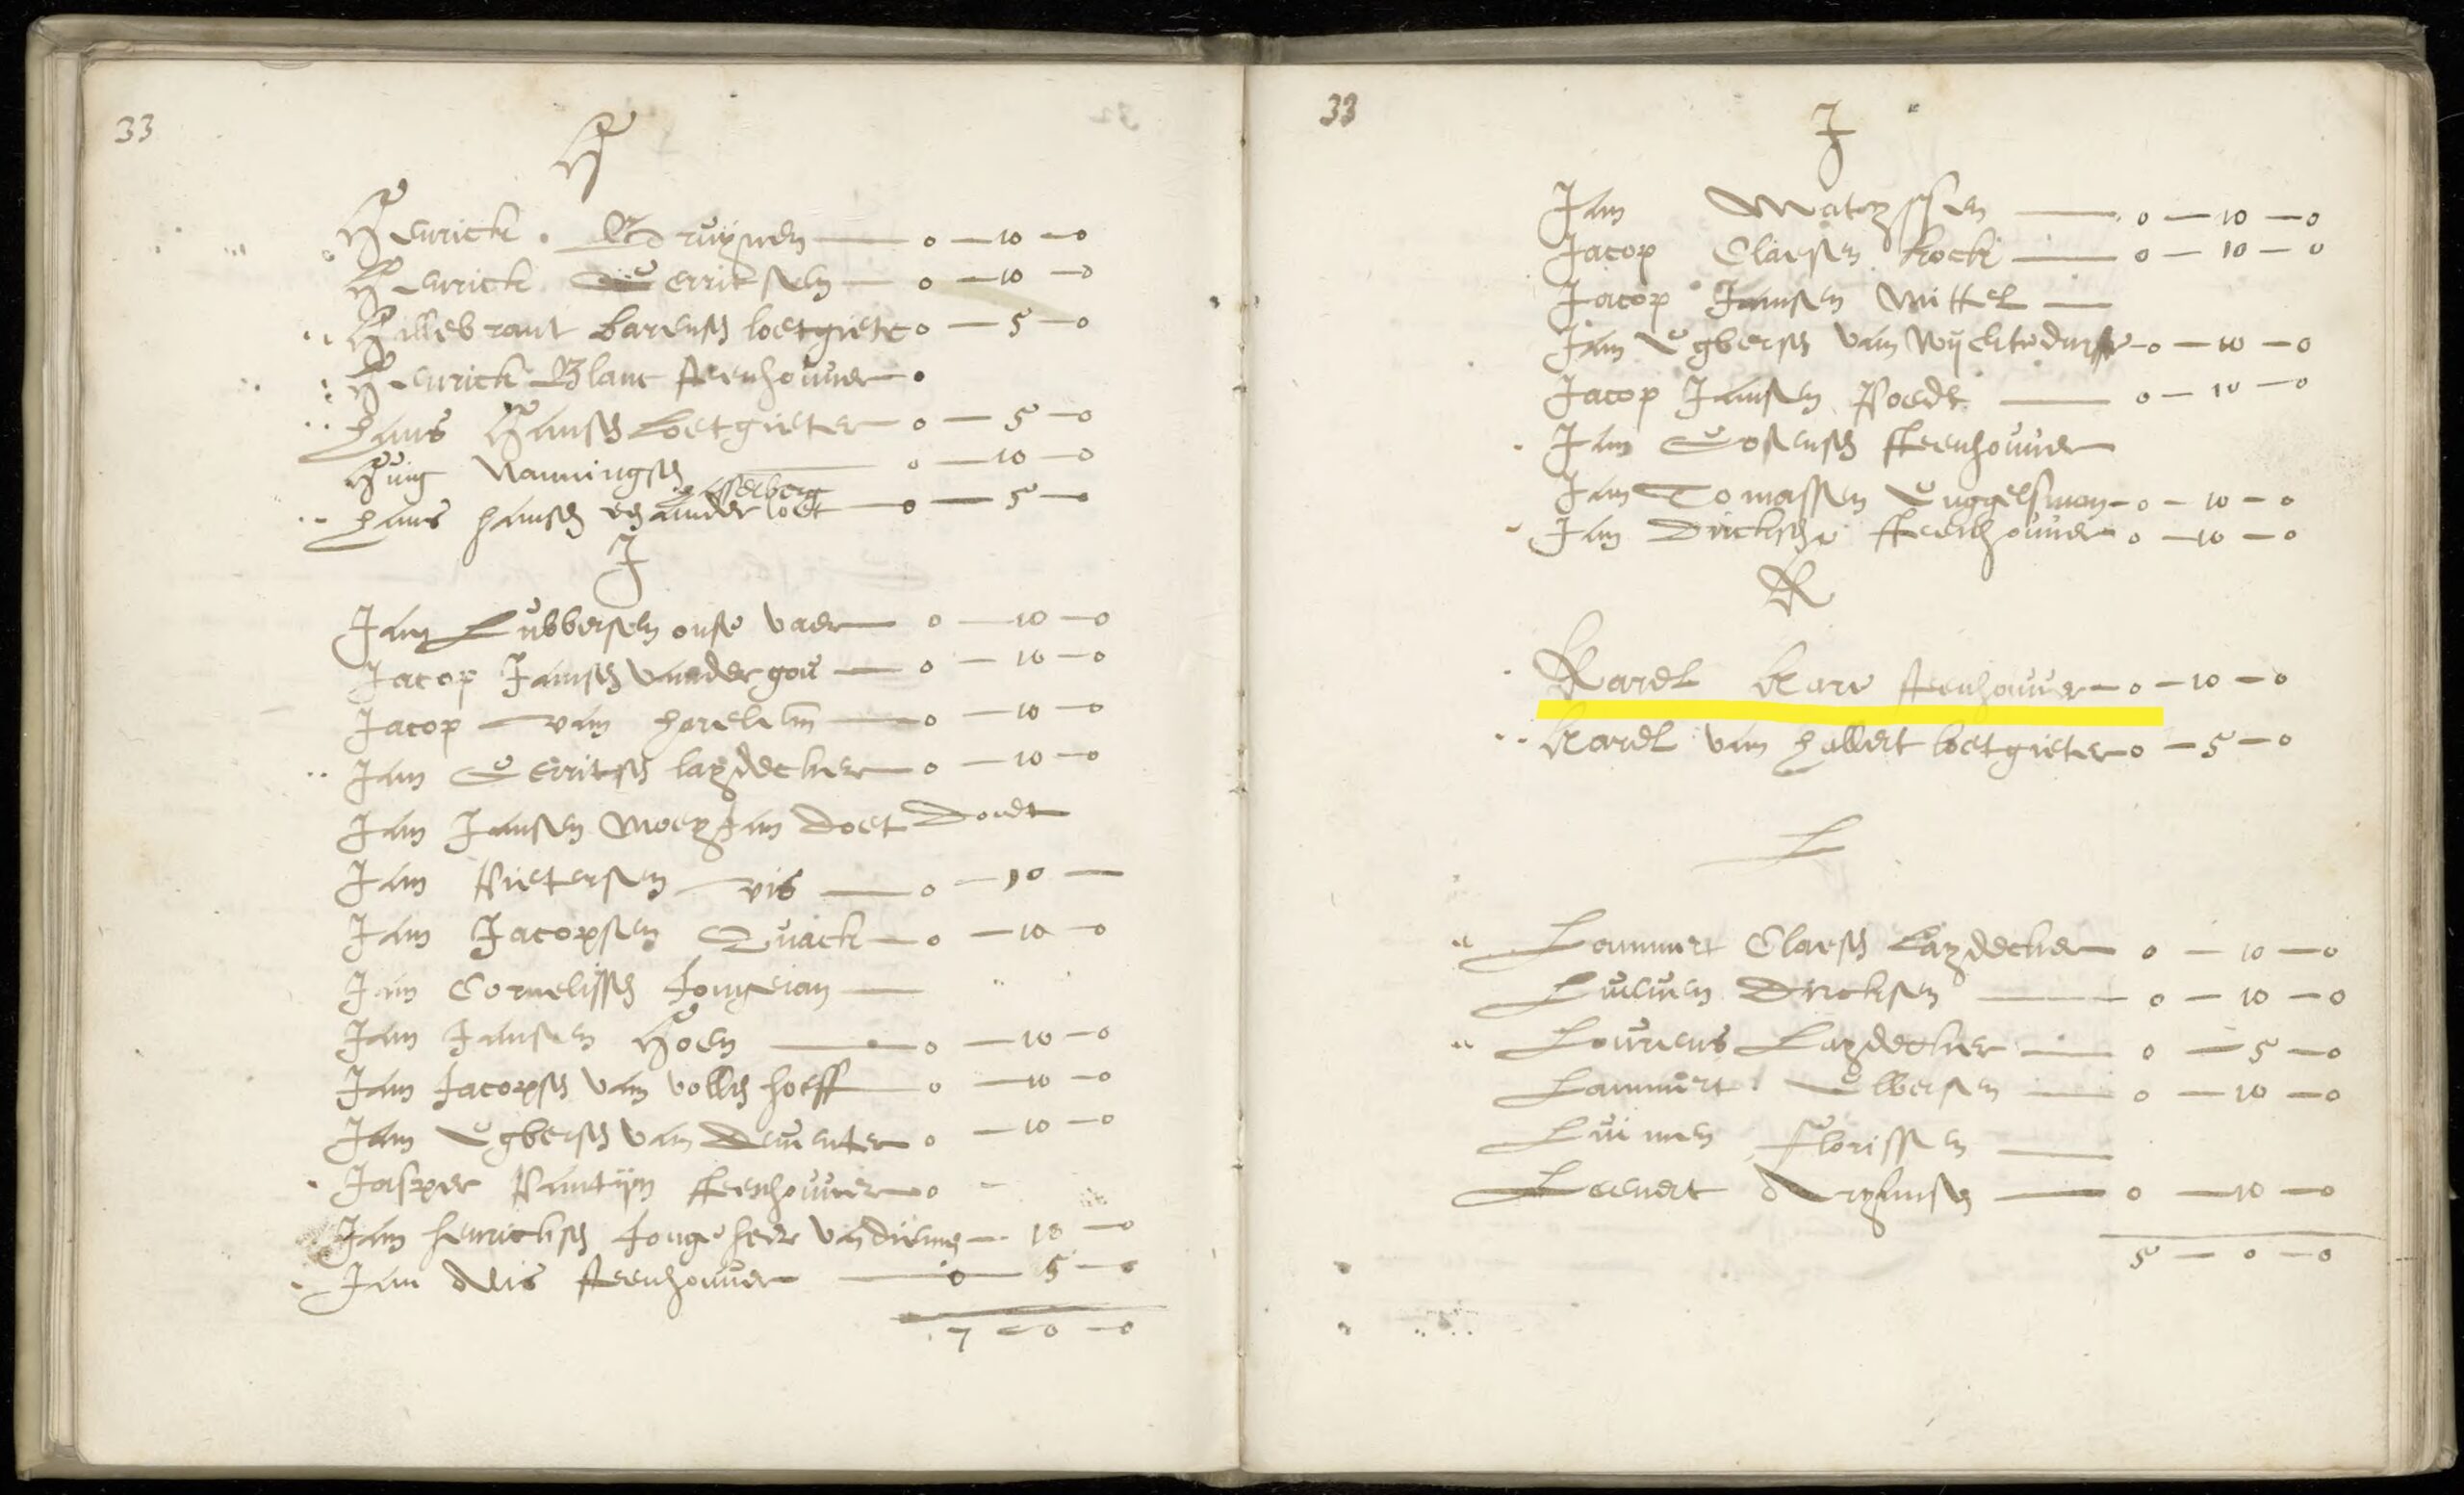 33
H
Henrick Bruijnen — 0 — 10 — 0
Henrick Gerritsen — 0 — 10 — 0
Hillebrant barensz loetgieter 0 — 5 — 0
Henrick Blanc steenhouwer
hans Hansz Loetgieter — 0 — 5 — 0
Huig Nanningsz — 0 — 10 — 0
hans hansz een ander loet — 0 — 5 — 0
J
Jan Lubbersen onse vaer — 0 — 10 — 0
Jacop Jansz vander gou — 0 — 10 — 0
Jacop van harelem — 0 — 10 — 0
Jan Gerritsz laydecker — 0 — 10 — 0
Jan Jansen Moey Jan doet Doedt
Jan Pietersen vis — 0 — 10 —
Jan Jacopsen Quack — 0 — 10 — 0
Jan Cornelissz Jongejan —
Jan Jansen Hoen — 0 — 10 — 0
Jan Jacopsz van vollen hoeff 0 — 10 — 0
Jan Egbersz van Deventer 0 — 10 — 0
Jasper Pantijn steenhouwer 0 —
Jan henricksz Jonge heer — 10 — 0
Jan Nis steenhouwer — 0 — 5 — 0
7 — 0 — 0
33
J
Jan Matyssen — 0 — 10 — 0
Jacop Claesen kock — 0 — 10 — 0
Jacop Jansen Mittel —
Jan Egbersz van — 0 — 10 — 0
Jacop Jansen Poedt — 0 — 10 — 0
Jan Gosensz steenhouwer
Jan Tomassen Enggelsman — 0 — 10 — 0
Jan Dircksen steenhouwer 0 — 10 — 0
K
Karel kare steenhouwer — 0 — 10 — 0
karel van hallert loetgieter 0 — 5 — 0
L
Lammert Claesz Laydecker 0 — 10 — 0
Lieuwen Dircksen — 0 — 10 — 0
Lourens Laydecker — 0 — 5 — 0
Lammert Elbersen — 0 — 10 — 0
Luimen florissen —
Leenert Aryansz — 0 — 10 — 0
5 — 0 — 0